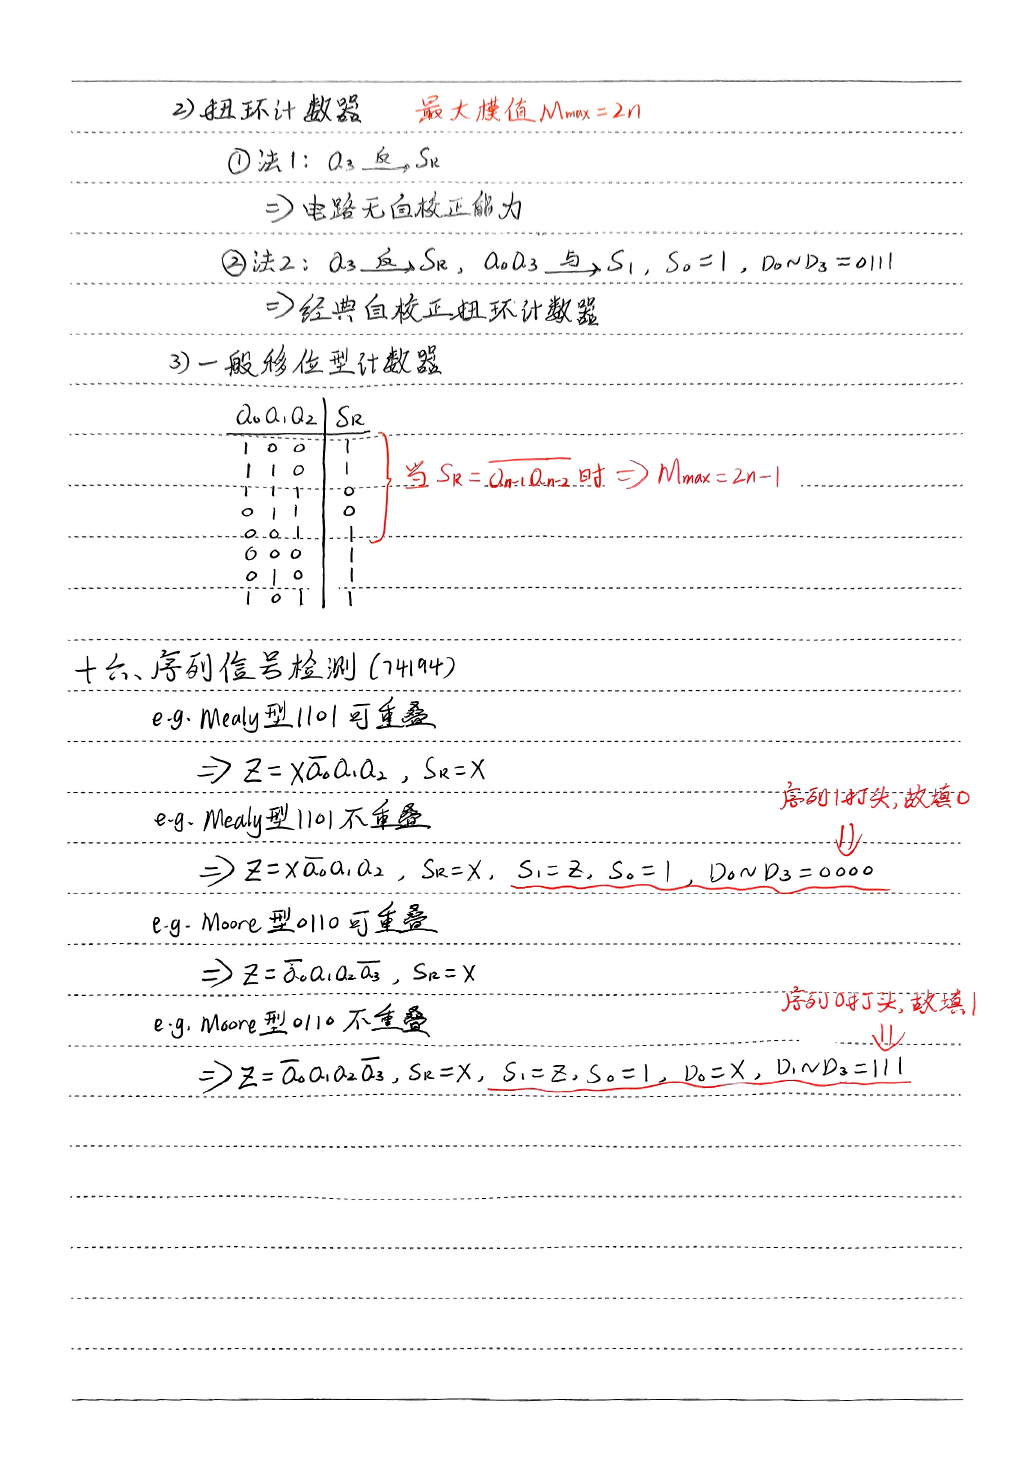 2) 扭环计数器 最大模值 Mmax = 2n
① 法1: Q3 反→ SR
⇒ 电路无自校正能力
② 法2: Q3 反→ SR, Q0Q3 与→ S1, S0 = 1, D0~D3 = 0111
⇒ 经典自校正扭环计数器
3) 一般移位型计数器
Q0 Q1 Q2 | SR
1 0 0 | 1
1 1 0 | 1
1 1 1 | 0
0 1 1 | 0
0 0 1 | 1
当 SR = \overline{Qn-1 Qn-2} 时 ⇒ Mmax = 2n-1
0 0 0 | 1
0 1 0 | 1
1 0 1 | 1
十六、序列信号检测 (74194)
e.g. Mealy型1101可重叠
⇒ Z = X\overline{Q0}Q1Q2, SR = X
序列1打头,故填0
e.g. Mealy型1101不重叠
⇓
⇒ Z = X\overline{Q0}Q1Q2, SR = X, S1 = Z, S0 = 1, D0~D3 = 0000
e.g. Moore型0110可重叠
⇒ Z = \overline{Q0}Q1Q2\overline{Q3}, SR = X
序列0打头,故填1
e.g. Moore型0110不重叠
⇓
⇒ Z = \overline{Q0}Q1Q2\overline{Q3}, SR = X, S1 = Z, S0 = 1, D0 = X, D1~D3 = 111